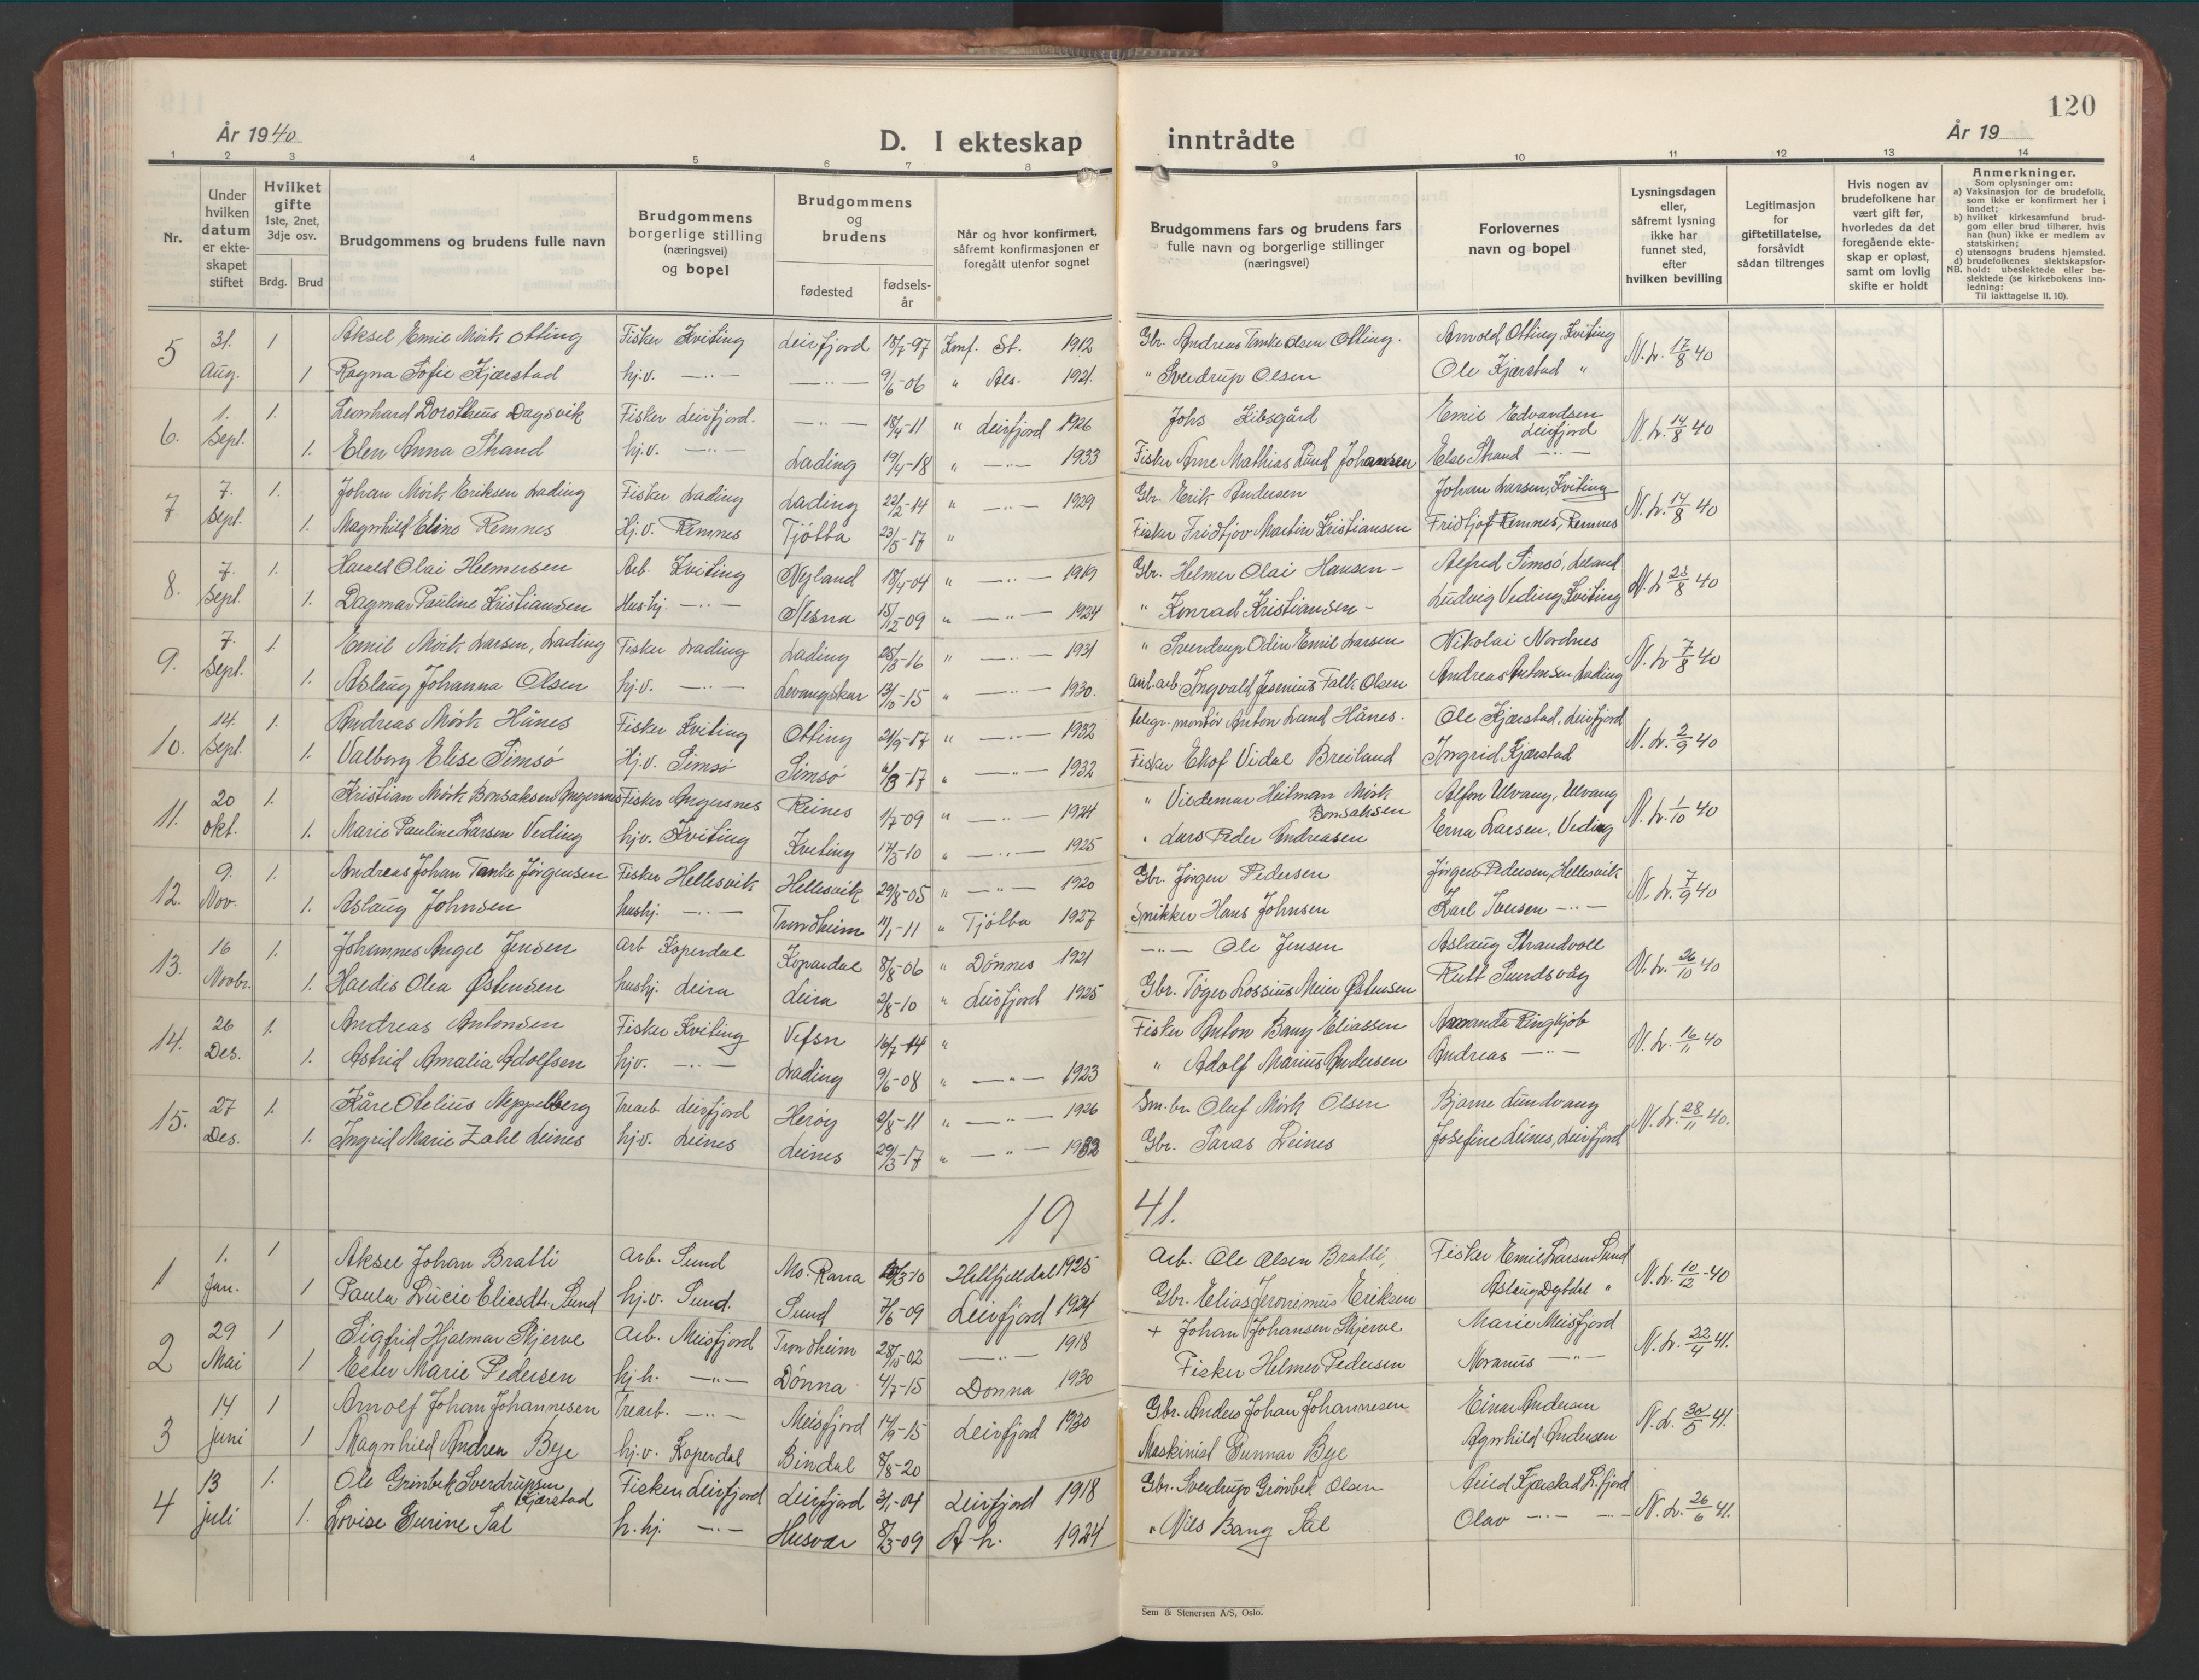 120
År 1940
D. I ekteskap inntrådte
År 19
1 2 3 4 5 6 7 8 9 10 11 12 13 14
Nr.
Under hvilken datum er ekteskapet stiftet
Hvilket gifte 1ste, 2net, 3dje osv.
Brdg. Brud
Brudgommens og brudens fulle navn
Brudgommens borgerlige stilling (næringsvei) og bopel
Brudgommens og brudens
fødested
fødselsår
Når og hvor konfirmert, såfremt konfirmasjonen er foregått utenfor sognet
Brudgommens fars og brudens fars fulle navn og borgerlige stillinger (næringsvei)
Forlovernes navn og bopel
Lysningsdagen eller, såfremt lysning ikke har funnet sted, efter hvilken bevilling
Legitimasjon for giftetillatelse, forsåvidt sådan tiltrenges
Hvis nogen av brudefolkene har vært gift før, hvorledes da det foregående ekteskap er opløst, samt om lovlig skifte er holdt
Anmerkninger.
Som oplysninger om:
a) Vaksinasjon for de brudefolk, som ikke er konfirmert her i landet;
b) hvilket kirkesamfund brudgom eller brud tilhører, hvis han (hun) ikke er medlem av statskirken;
c) utensogns brudens hjemsted.
d) brudefolkenes slektskapsforhold: ubeslektede eller beslektede (se kirkebokens innledning:
NB.
Til iakttagelse II. 10).
5 31. Aug. 1 Aksel Emil Mörk Otting Fisker Kviting Leirfjord 18/7-97 Konf. St. 1912 Gbr. Andreas Tanke Olsen Otting. Arnold Otting, Kviting N. L. 17/8 40
1 Ragna Sofie Kjærstad hj.v. —"— —"— 9/6-06 " Als. 1921. " Sverdrup Olsen Ole Kjærstad "
6. 1. Sept. 1. Leonhard Dorotheus Dagsvik Fisker Leirfjord. —"— 18/4-11 " Leirfjord 1926 Johs Kibsgård Emil Edvardsen Leirfjord N. L. 14/8 40
1. Elen Anna Strand hj.v. —"— Lading 19/4-18 " —"— 1933 Fisker Arne Mathias Lund Johansen Else Strand —"—
7 7. Sept. 1. Johan Mörk Eriksen Lading Fisker Lading Lading 22/2-14 " —"— 1929 Gbr. Erik Andersen Johan Larsen, Kviting N. L. 14/8 40
1. Magnhild Elino Remnes Hj.v. Remnes Tjötta 23/5-17 " Fisker Fridtjov Martin Kristiansen Fridtjof Remnes, Remnes
8. 7. Sept. 1. Harald Olai Helmersen Arb. Kviting Nyland 18/4-04 " —"— 1919 Gbr. Helmer Olai Hansen – Alfred Simsö, Leland N. L 23/8 40
1. Dagmar Pauline Kristiansen Hushj. —"— Nesna 15/12-09 " —"— 1924 " Konrad Kristiansen – Ludvig Veding Kviting
9. 7. Sept. 1. Emil Mörk Larsen, Lading Fisker Lading Lading 25/3-16 " —"— 1931 " Sverdrup Odin Emil Larsen Nikolai Nordnes N. L 7/8 40
1. Aslaug Johanna Olsen hj.v. —"— Levangskar 13/10-15 " —"— 1930. anl.arb. Ingvald Jesenius Falk Olsen Andreas Antonsen Lading
10. 14. Sept. 1. Andreas Mörk Hånes Fisker Kviting Otting 21/9-17 " —"— 1932 telegr. montör Anton Lund Hånes. Ole Kjærstad, Leirfjord N. L. 2/9 40
1. Valborg Elise Simsö Hj.v. Simsö Simsö /3-17 " —"— 1932 Fisker Vidal Breiland Ingrid Kjærstad
11. 20 okt. 1. Kristian Mörk Bonsaksen Angersnes Fisker Angersnes Reines 1/7-09 " —"— 1924 " Heitman Mörk Bonsaksen Alfon Ulvang, Ulvang N. L. 1/10 40
1. Marie Pauline Larsen Veding hjv. Kviting Kviting 14/5-10 " —"— 1925 " Lars Peder Andreasen Erna Larsen, Veding
12. 9. Nov. 1. Andreas Johan Tanke Jörgensen Fisker Hellesvik Hellesvik 29/8-05 " —"— 1920 Gbr. Jörgen Pedersen Jörgen Pedersen, Hellesvik N. L. 7/9 40
1. Aslaug Johnsen hushj. —"— Trondheim 11/1-11 " Tjötta 1927 Snikker Hans Johnsen Karl Iversen —"—
13. 16 Novbr. 1. Johannes Angel Jensen Arb Koperdal Kopardal 8/8-06 " Dönnes 1921 —"— Ole Jensen Aslaug Strandvoll N. L. 26/10 40
1. Haldis Olea Østensen hushj. Leira Leira 2/8-10 " Leirfjord 1925 Gbr. Töger Lossius Meier Østensen Rutt Sundsvåg
14. 26 Des. 1. Andreas Antonsen Fisker Kviting Vefsn 16/7-14 " Fisker Anton Bang Eliassen Amanda Ringkjöb N. L. 16/11 40
1. Astrid Amalia Adolfsen hjv. —"— Lading 9/6-08 " —"— 1923 " Adolf Marius Andersen Andreas —"—
15. 27 Des. 1. Kåre Otelius Neppelberg Trearb. Leirfjord Heröy 2/8-11 " —"— 1926 Sm.br. Oluf Mörk Olsen Bjarne Lundvang N. L. 28/11 40.
1. Ingrid Marie Zahl Leines hj.v. Leines Leines 29/3-17 " —"— 1932 Gbr. Paras Leines Josefine Leines, Leirfjord
1941.
1 1. Jan. 1 Aksel Johan Bratli Arb. Sund Mo. Rana /3-10 Hellfjelldal 1925 Arb. Ole Olsen Bratli, Fisker Emil Larsen Sund N. L. 10/12-40
1 Paula Lucie Eliasdtr. Sund hj.v. Sund. Sund 7/6-09 Leirfjord 1924 Gbr. Elias Jeronimus Eriksen Aslaug Dybdal "
2 29 Mai 1 Sigfrid Hjalmar Skjerve Arb. Meisfjord Trondheim 28/5-02 —"— 1918 + Johan Johansen Skjerve Marie Meisfjord N. L. 22/4 41.
1 Ester Marie Pedersen hj.h. —"— Dönna 4/7-15 Dönna 1930 Fisker Helmer Pedersen Moranus —"—
3 14 juni 1 Arnolf Johan Johannesen Trearb. —"— Meisfjord 14/9-15 Leirfjord 1930 Gbr. Anders Johan Johannesen Einar Andersen N. L. 30/5 41.
1 Magnhild Andrea Bye hj.v. Koperdal Bindal 8/8-20 Maskinist Gunnar Bye Agnhild Andersen
4 13 juli 1. Ole Grönbek Sverdrupsen Kjærstad Fisker Leirfjord Leirfjord 3/1-04 Leirfjord 1918 Gbr. Sverdrup Grönbek Olsen Arild Kjærstad L.fjord N. L. 26/6 41.
1. Lovise Gurine Sal h.hj. —"— Husvær 8/3-09 A h. 1924 " Nils Bang Sal Olav —"— —"—
Sem & Stenersen A/S, Oslo.